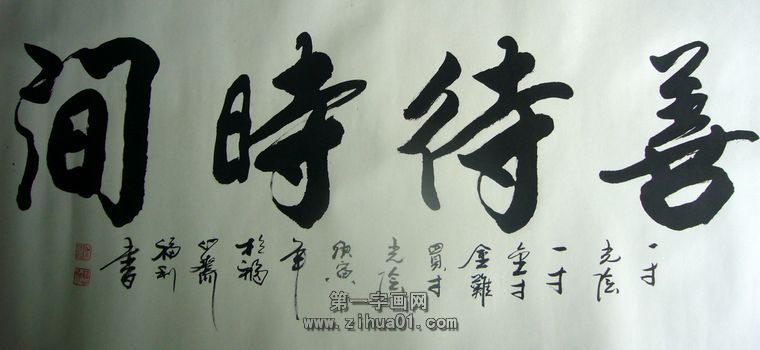 善待時間
一寸
光陰
一寸
金寸
金難
買寸
光陰
庚寅
年
心齋
福利
書
第一字画网
www.zihua01.com